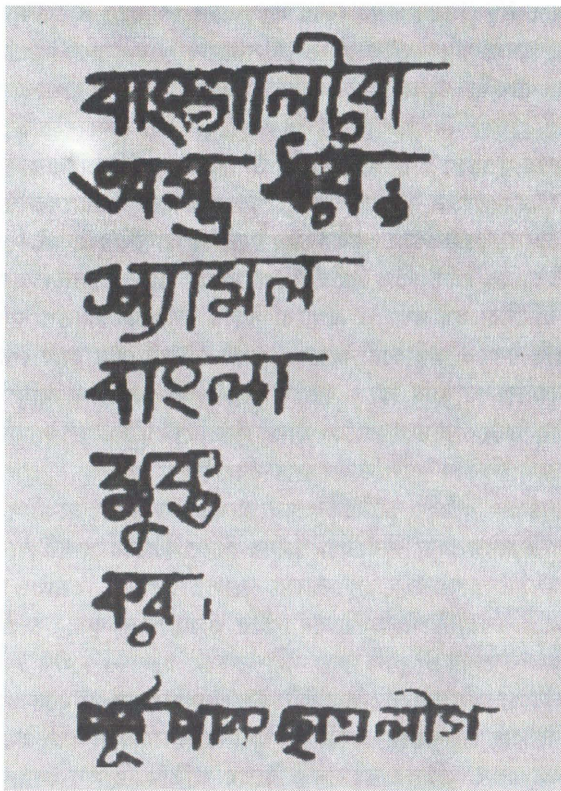 বাঙ্গালীরা
অস্ত্র ধর,
শ্যামল
বাংলা
মুক্ত
কর।
পূর্ব পাক ছাত্র লীগ